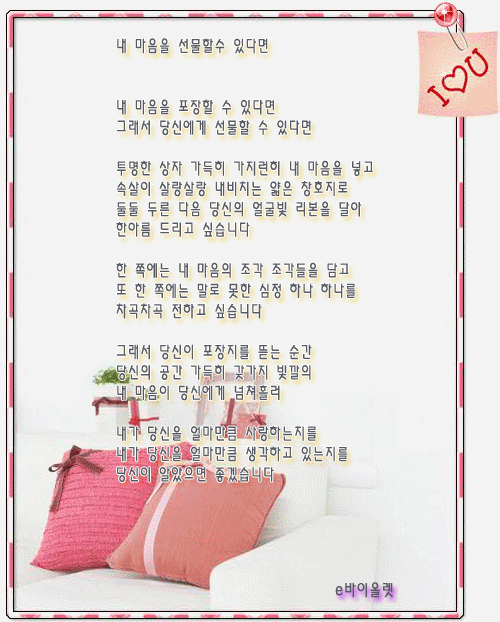 I♡U
내 마음을 선물할수 있다면
내 마음을 포장할 수 있다면
그래서 당신에게 선물할 수 있다면
투명한 상자 가득히 가지런히 내 마음을 넣고
속살이 살랑살랑 내비치는 얇은 창호지로
둘둘 두른 다음 당신의 얼굴빛 리본을 달아
한아름 드리고 싶습니다
한 쪽에는 내 마음의 조각 조각들을 담고
또 한 쪽에는 말로 못한 심정 하나 하나를
차곡차곡 전하고 싶습니다
그래서 당신이 포장지를 뜯는 순간
당신의 공간 가득히 갖가지 빛깔의
내 마음이 당신에게 넘쳐흘러
내가 당신을 얼마만큼 사랑하는지를
내가 당신을 얼마만큼 생각하고 있는지를
당신이 알았으면 좋겠습니다
e바이올렛